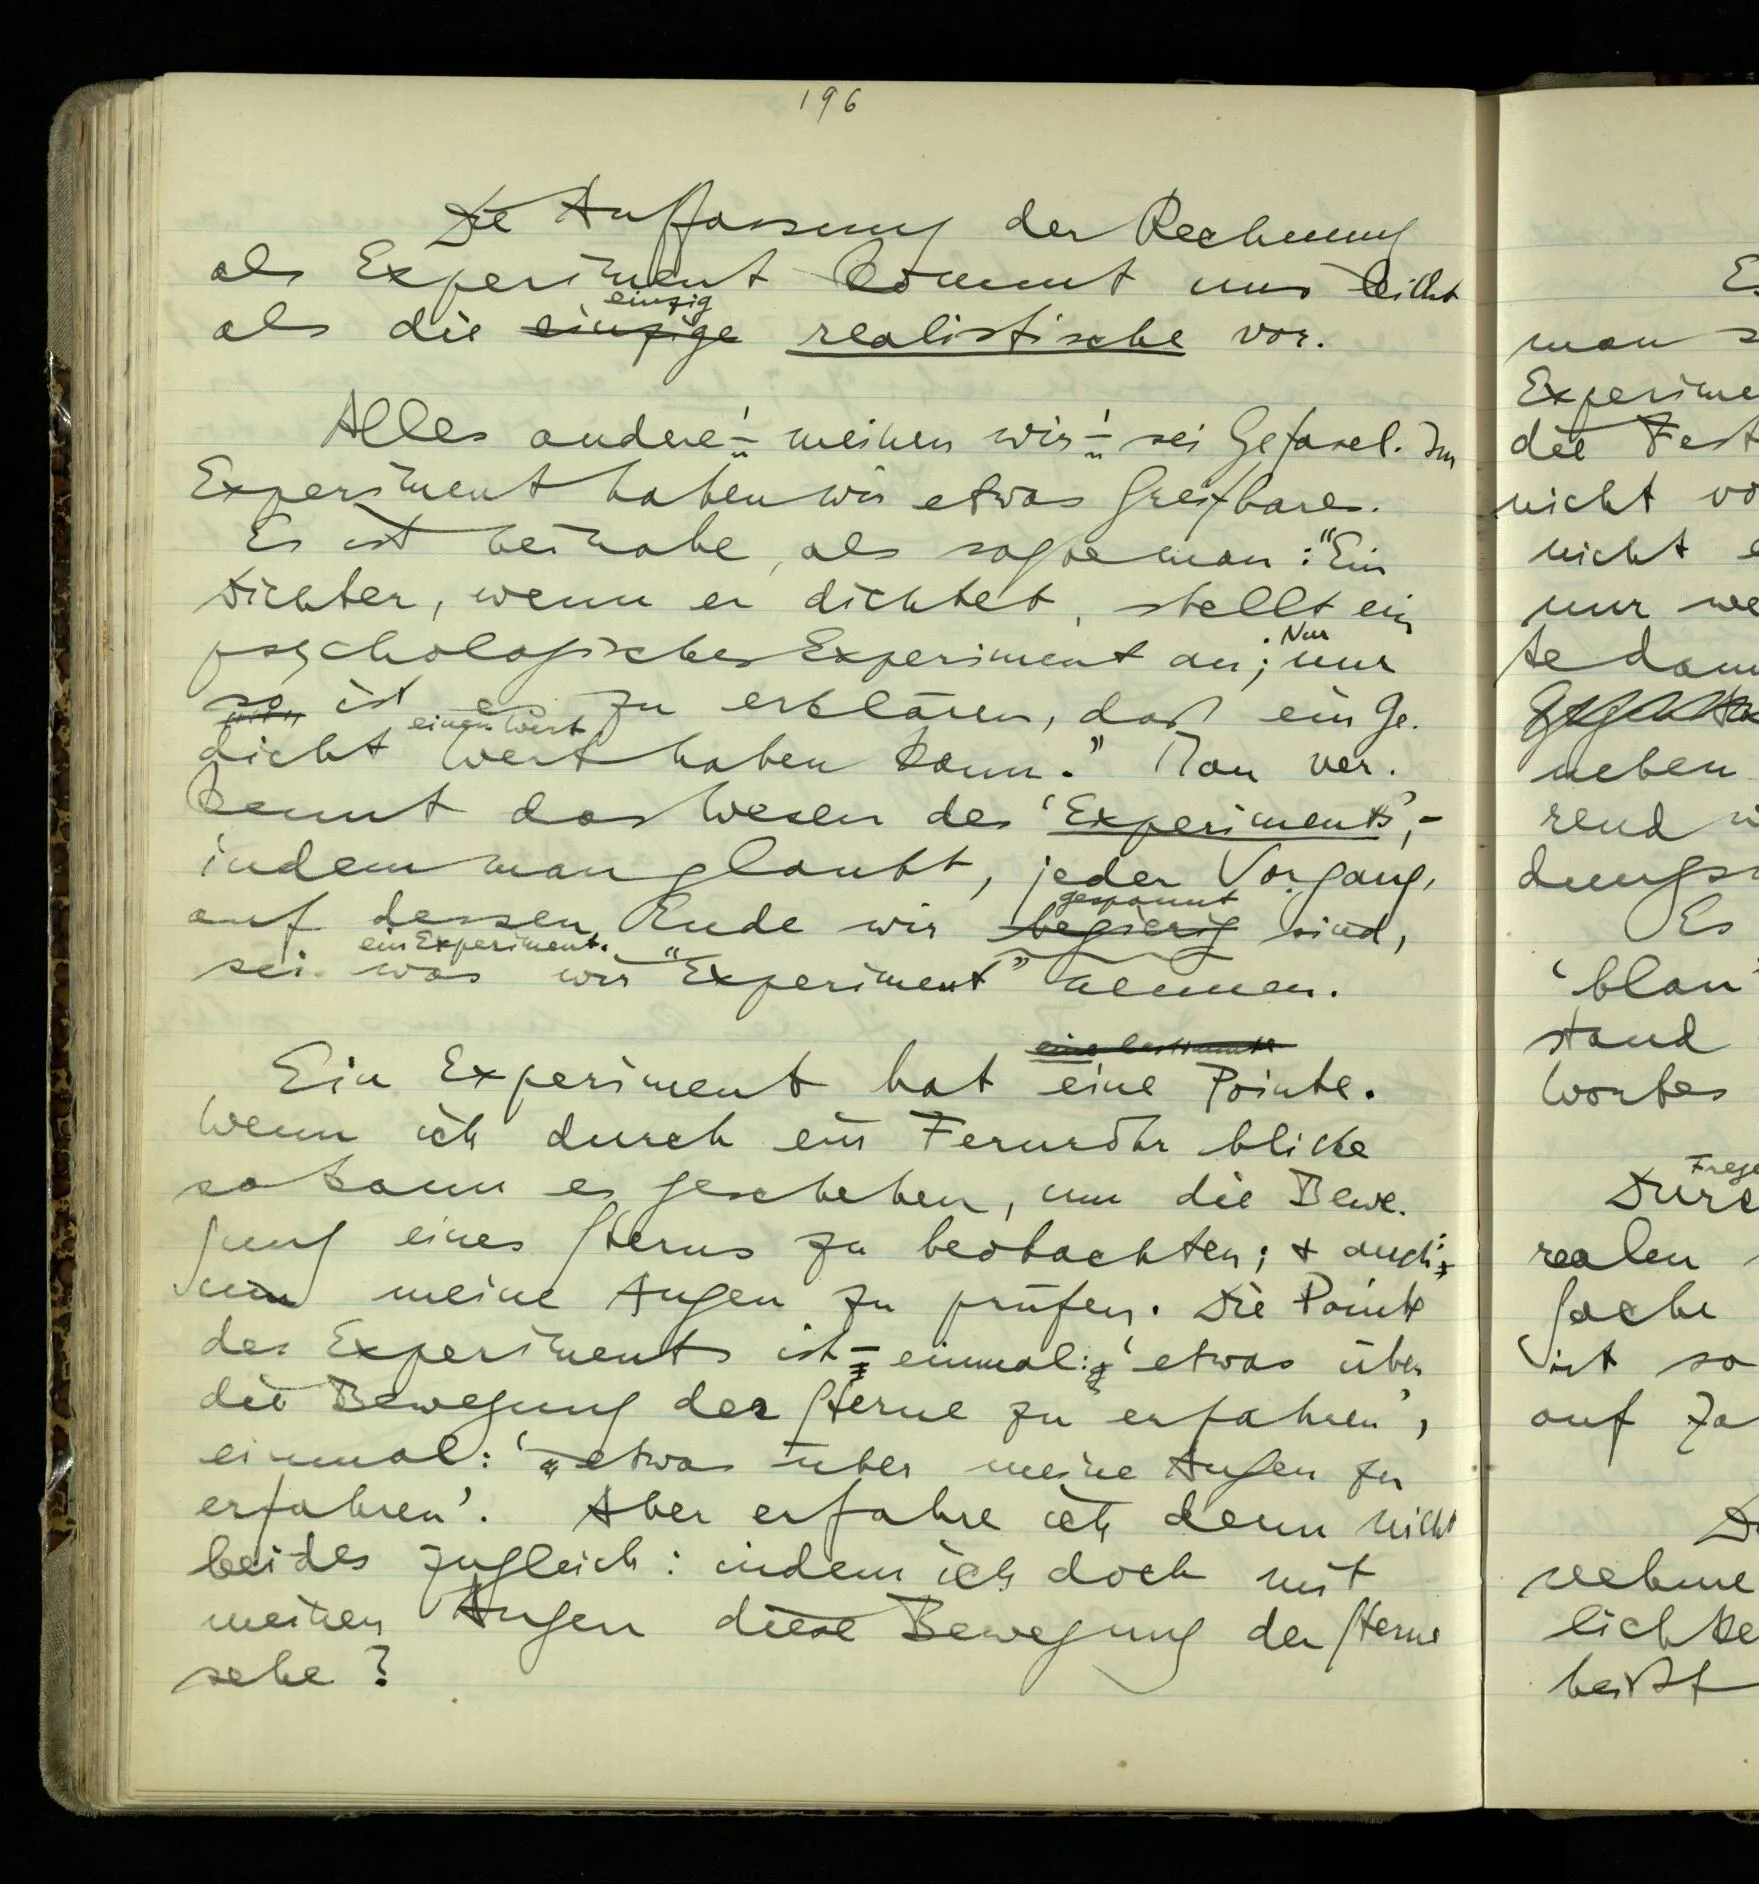 196
Die Auffassung der Rechnung
als Experiment kommt uns leicht
einzig
als die einzige realistische vor.
Alles andere – meinen wir – sei Gefasel. Im
Experiment haben wir etwas Greifbares.
Es ist beinahe, als sagte man: "Ein
Dichter, wenn er dichtet, stellt ein
psychologisches Experiment an; nur
Nur
so ist es zu erklären, daß ein Ge-
einen Wert
dicht Wert haben kann." Man ver-
kennt das Wesen des 'Experiments', –
indem man glaubt, jeder Vorgang,
gespannt
auf dessen Ende wir begierig sind,
ein Experiment.
sei was wir "Experiment" nennen.
eine bestimmte
Ein Experiment hat eine Pointe.
Wenn ich durch ein Fernrohr blicke
so kann es geschehen, um die Bewe-
gung eines Sterns zu beobachten; & auch:
um meine Augen zu prüfen. Die Pointe
des Experiments ist – einmal: 'etwas über
die Bewegung der Sterne zu erfahren',
einmal: 'etwas über meine Augen zu
erfahren'. Aber erfahre ich denn nicht
beides zugleich: indem ich doch mit
meinen Augen diese Bewegung der Sterne
sehe?
man
Experime
die Fest
nicht vo
nicht
nur we
te dann
neben
rend
dungs
Es
'blau'
stand
Wortes
Frege
realen
Sache
ist so
auf Za
nehme
lichke
heißt